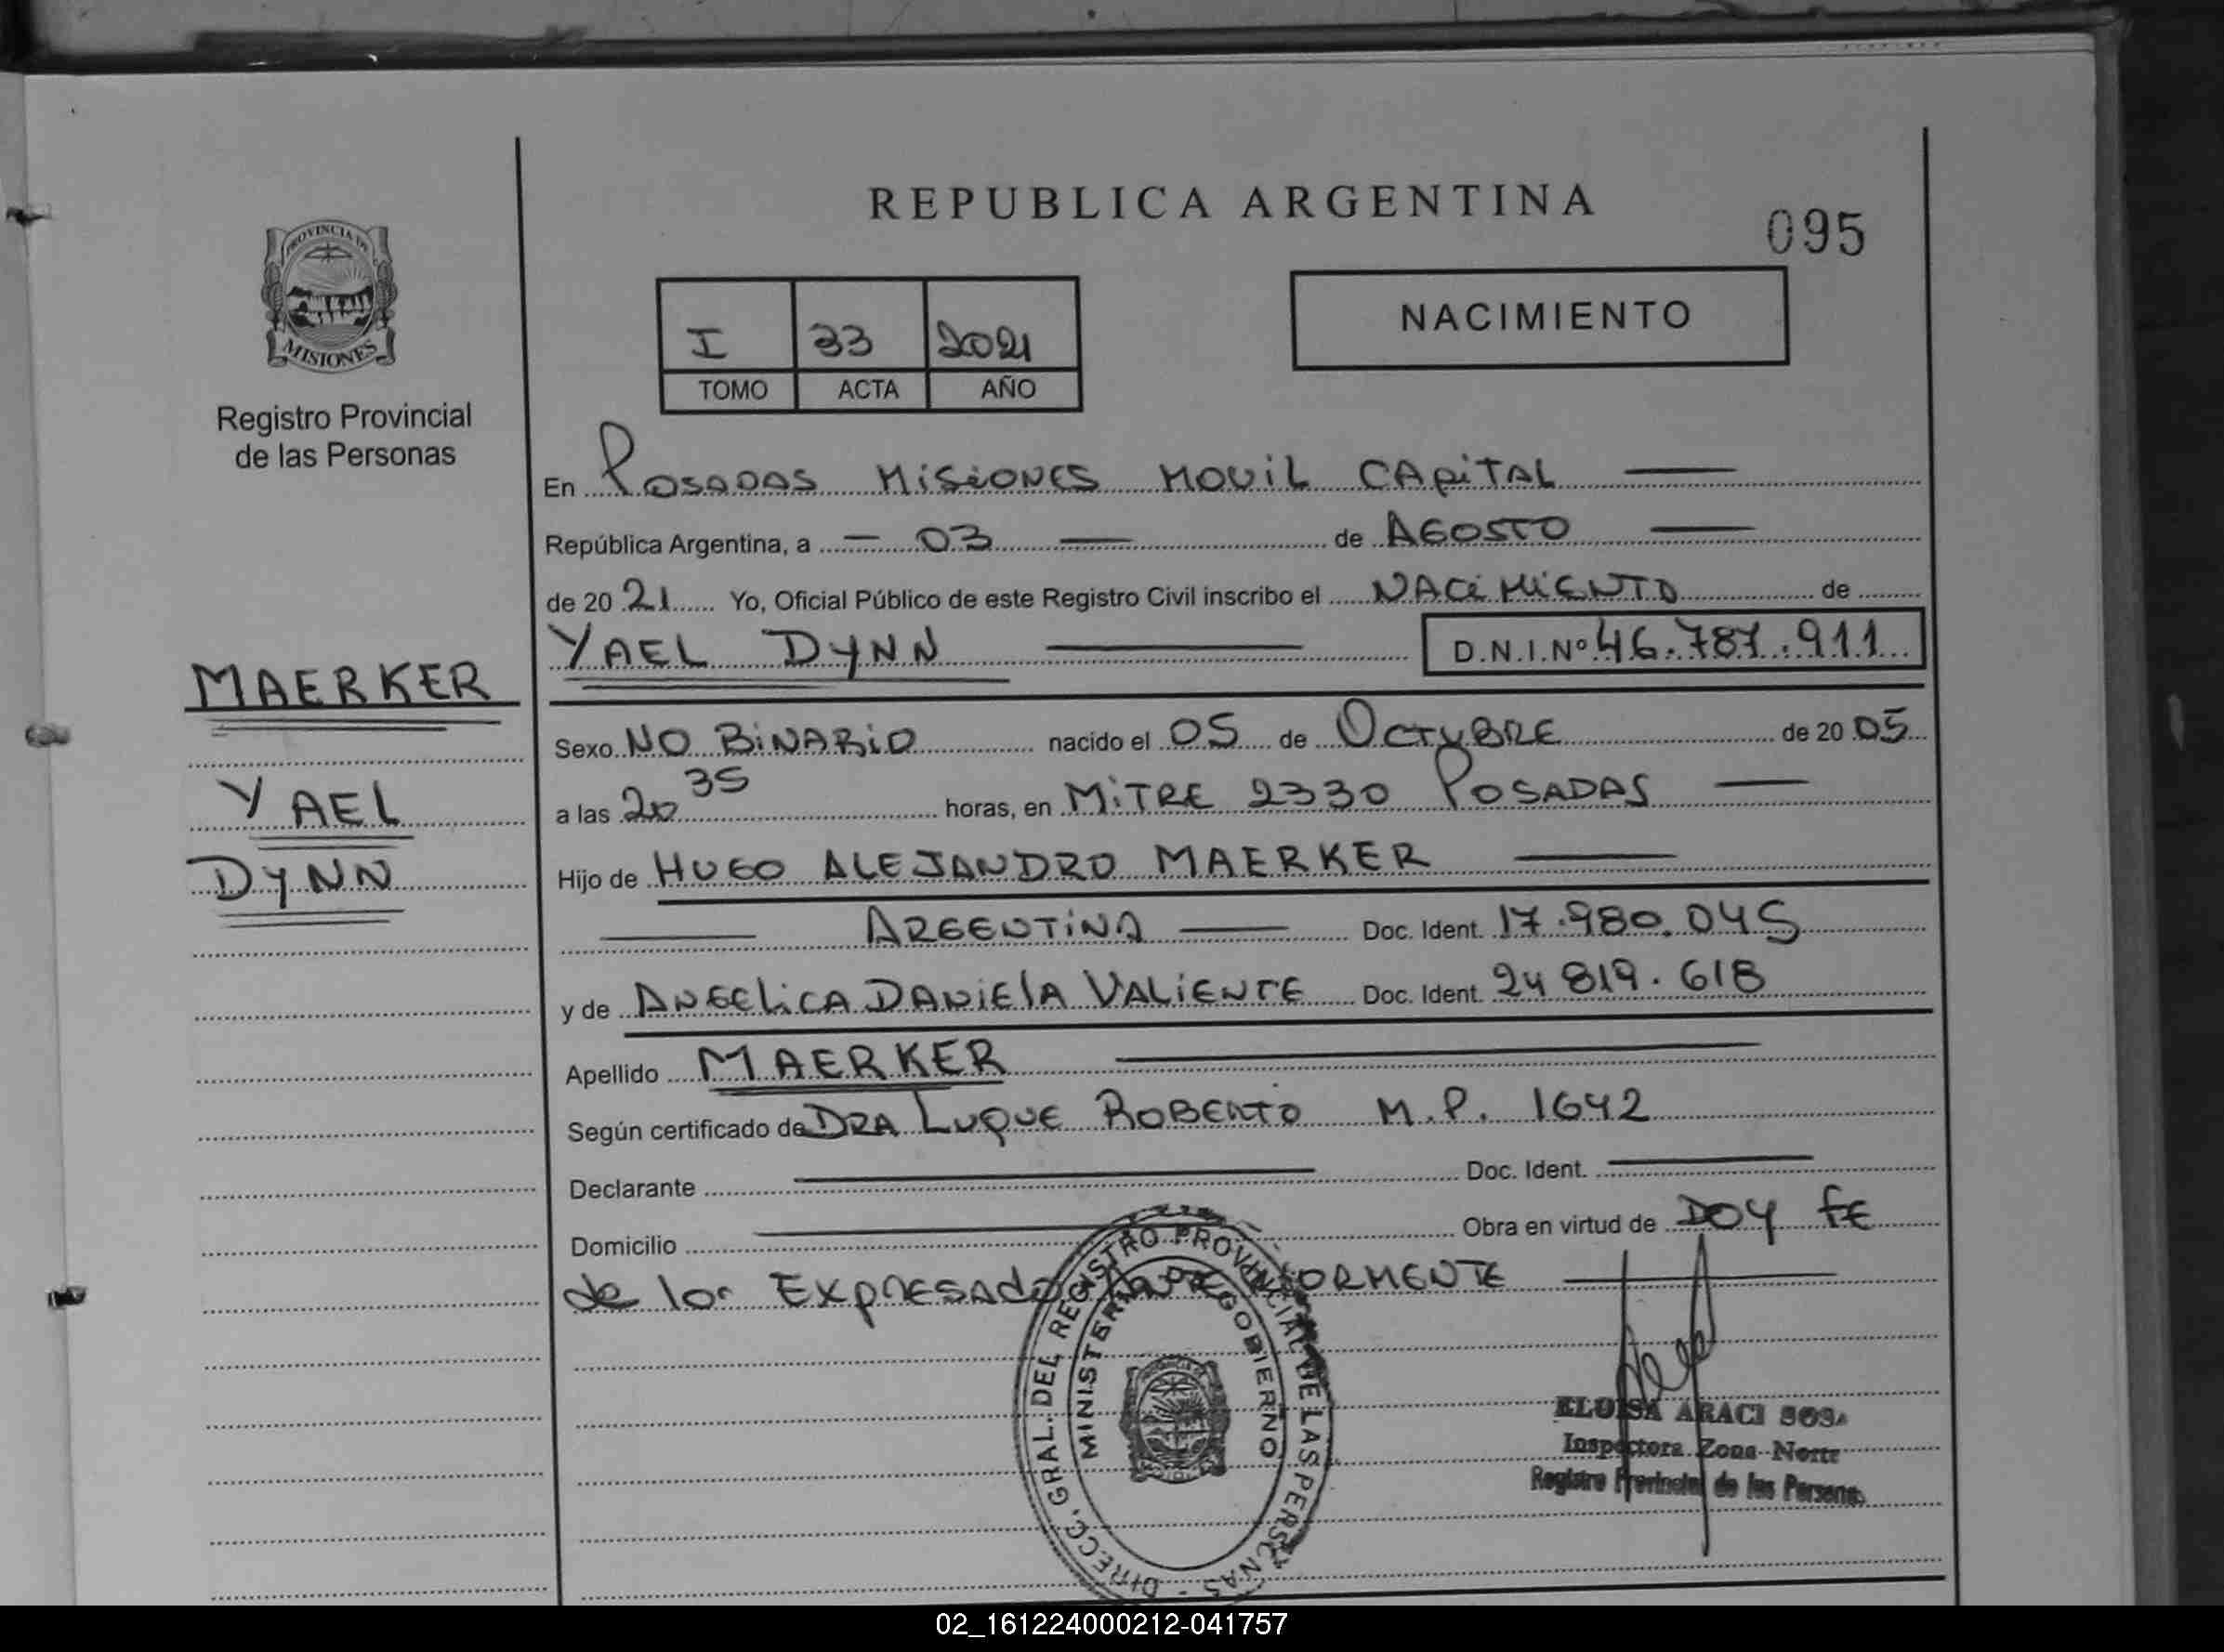 REPUBLICA ARGENTINA
095
PROVINCIA DE
MISIONES
Registro Provincial
de las Personas
I 33 2021
TOMO ACTA AÑO
NACIMIENTO
En POSADAS MISIONES MOVIL CAPITAL
República Argentina, a 03 de AGOSTO
de 2021 Yo, Oficial Público de este Registro Civil inscribo el NACIMIENTO de
YAEL DYNN D.N.I.Nº 46.787.911
MAERKER
YAEL
DYNN
Sexo NO BINARIO nacido el 05 de OCTUBRE de 2005
a las 20 35 horas, en MITRE 2330 POSADAS
Hijo de HUGO ALEJANDRO MAERKER
ARGENTINA Doc. Ident. 17.980.045
y de ANGELICA DANIELA VALIENTE Doc. Ident. 24 819.618
Apellido MAERKER
Según certificado de DRA LUQUE ROBERTO M.P. 1642
Declarante Doc. Ident.
Domicilio Obra en virtud de DOY FE
de lo EXPRESADO ANTERIORMENTE
DIRECC. GRAL. DEL REGISTRO PROVINCIAL DE LAS PERSONAS
MINISTERIO DE GOBIERNO
ELOISA ARACI SOSA
Inspectora Zona Norte
Registro Provincial de las Personas
02_161224000212-041757